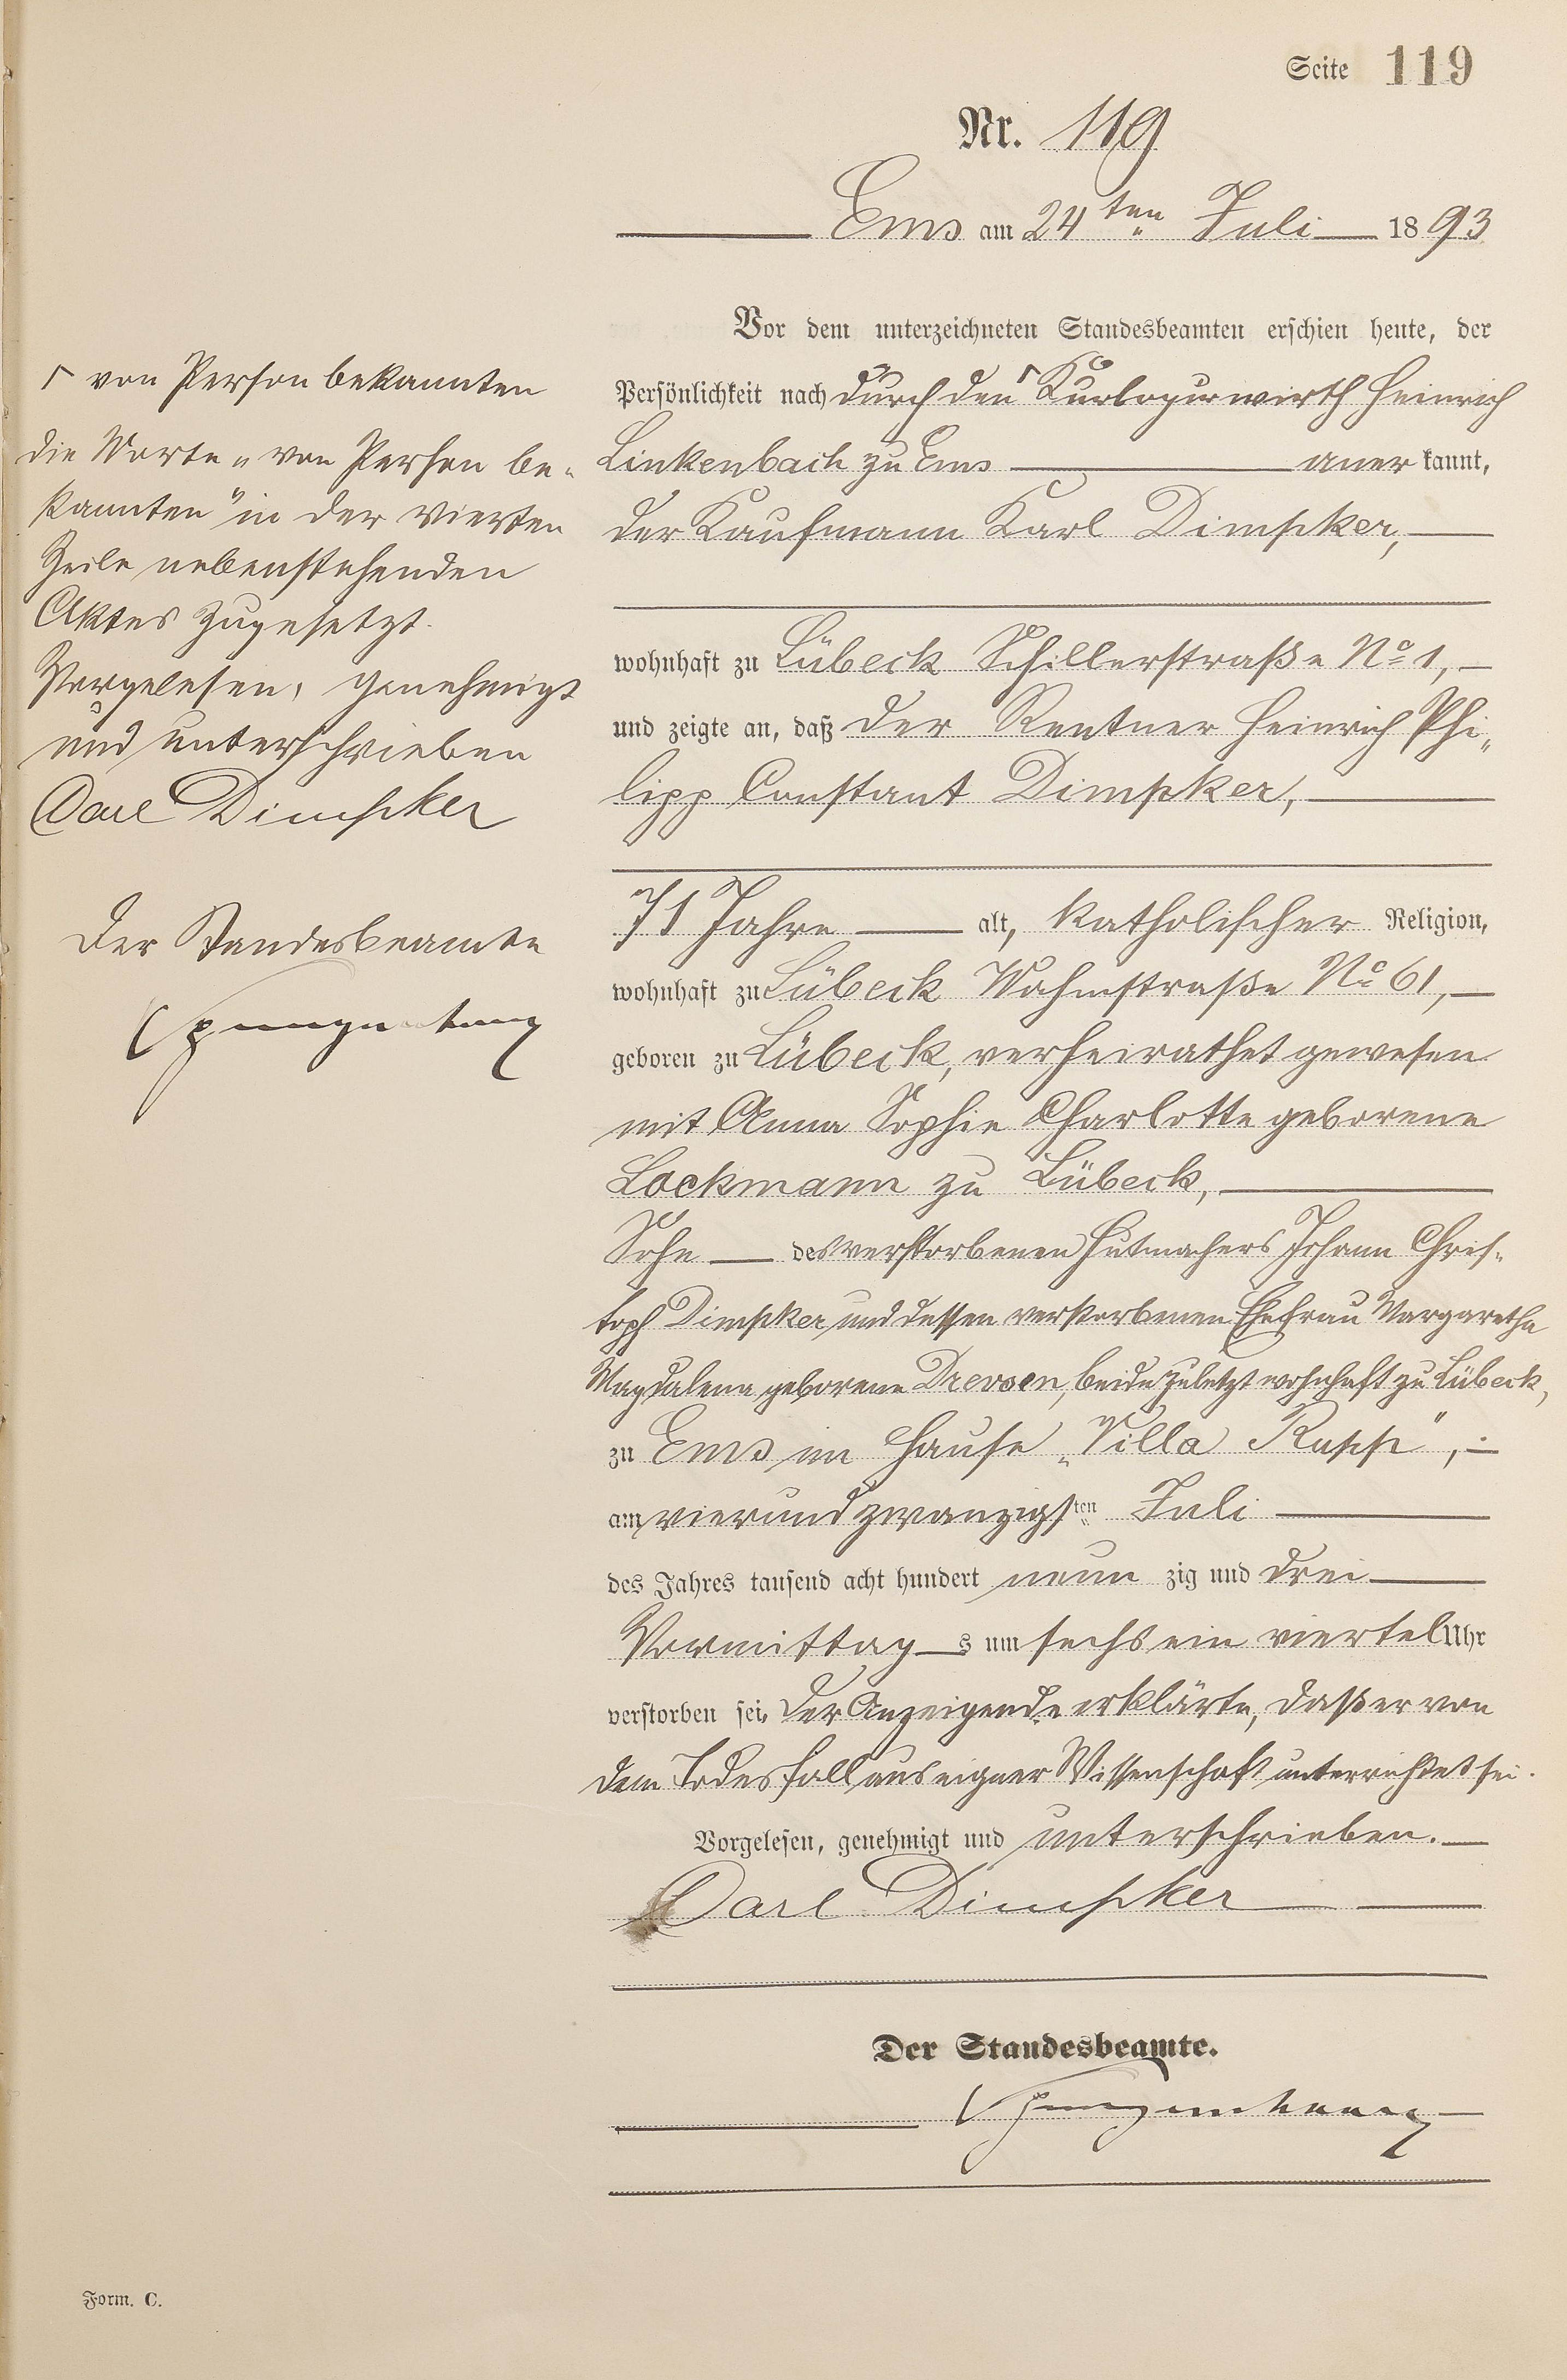 Seite 119
Nr. 119
Ems am 24ten Juli 1893
Vor dem unterzeichneten Standesbeamten erschien heute, der
Persönlichkeit nach durch den ⌈ Kurlogirwirth Heinrich
Linkenbach zu Ems anerkannt,
der Kaufmann Karl Dimpker,
wohnhaft zu Lübeck Schillerstraße No 1,
und zeigte an, daß der Rentner Heinrich Phi-
lipp Constant Dimpker,
71 Jahre alt, katholischer Religion,
wohnhaft zu Lübeck Wahmstraße No 61,
geboren zu Lübeck, verheirathet gewesen
mit Anna Sophie Charlotte geborene
Lockmann zu Lübeck,
Sohn des verstorbenen Hutmachers Johann Chris-
toph Dimpker und dessen verstorbenen Ehefrau Margaretha
Magdalena geborene Drevsen, beide zuletzt wohnhaft zu Lübeck,
zu Ems im Hause „Villa Rupp",
am vierundzwanzigsten Juli
des Jahres tausend acht hundert neunzig und drei
Vormittags um sechs ein viertel Uhr
verstorben sei. Der Anzeigende erklärte, daß er von
dem Todesfall aus eigner Wissenschaft unterrichtet sei.
Vorgelesen, genehmigt und unterschrieben.
Carl Dimpker
Der Standesbeamte.
⌈ von Person bekannten
Die Worte „von Person be-
kannten" in der vierten
Zeile nebenstehenden
Aktes zugesetzt.
Vorgelesen, genehmigt
und unterschrieben
Carl Dimpker
Der Standesbeamte
Form. C.